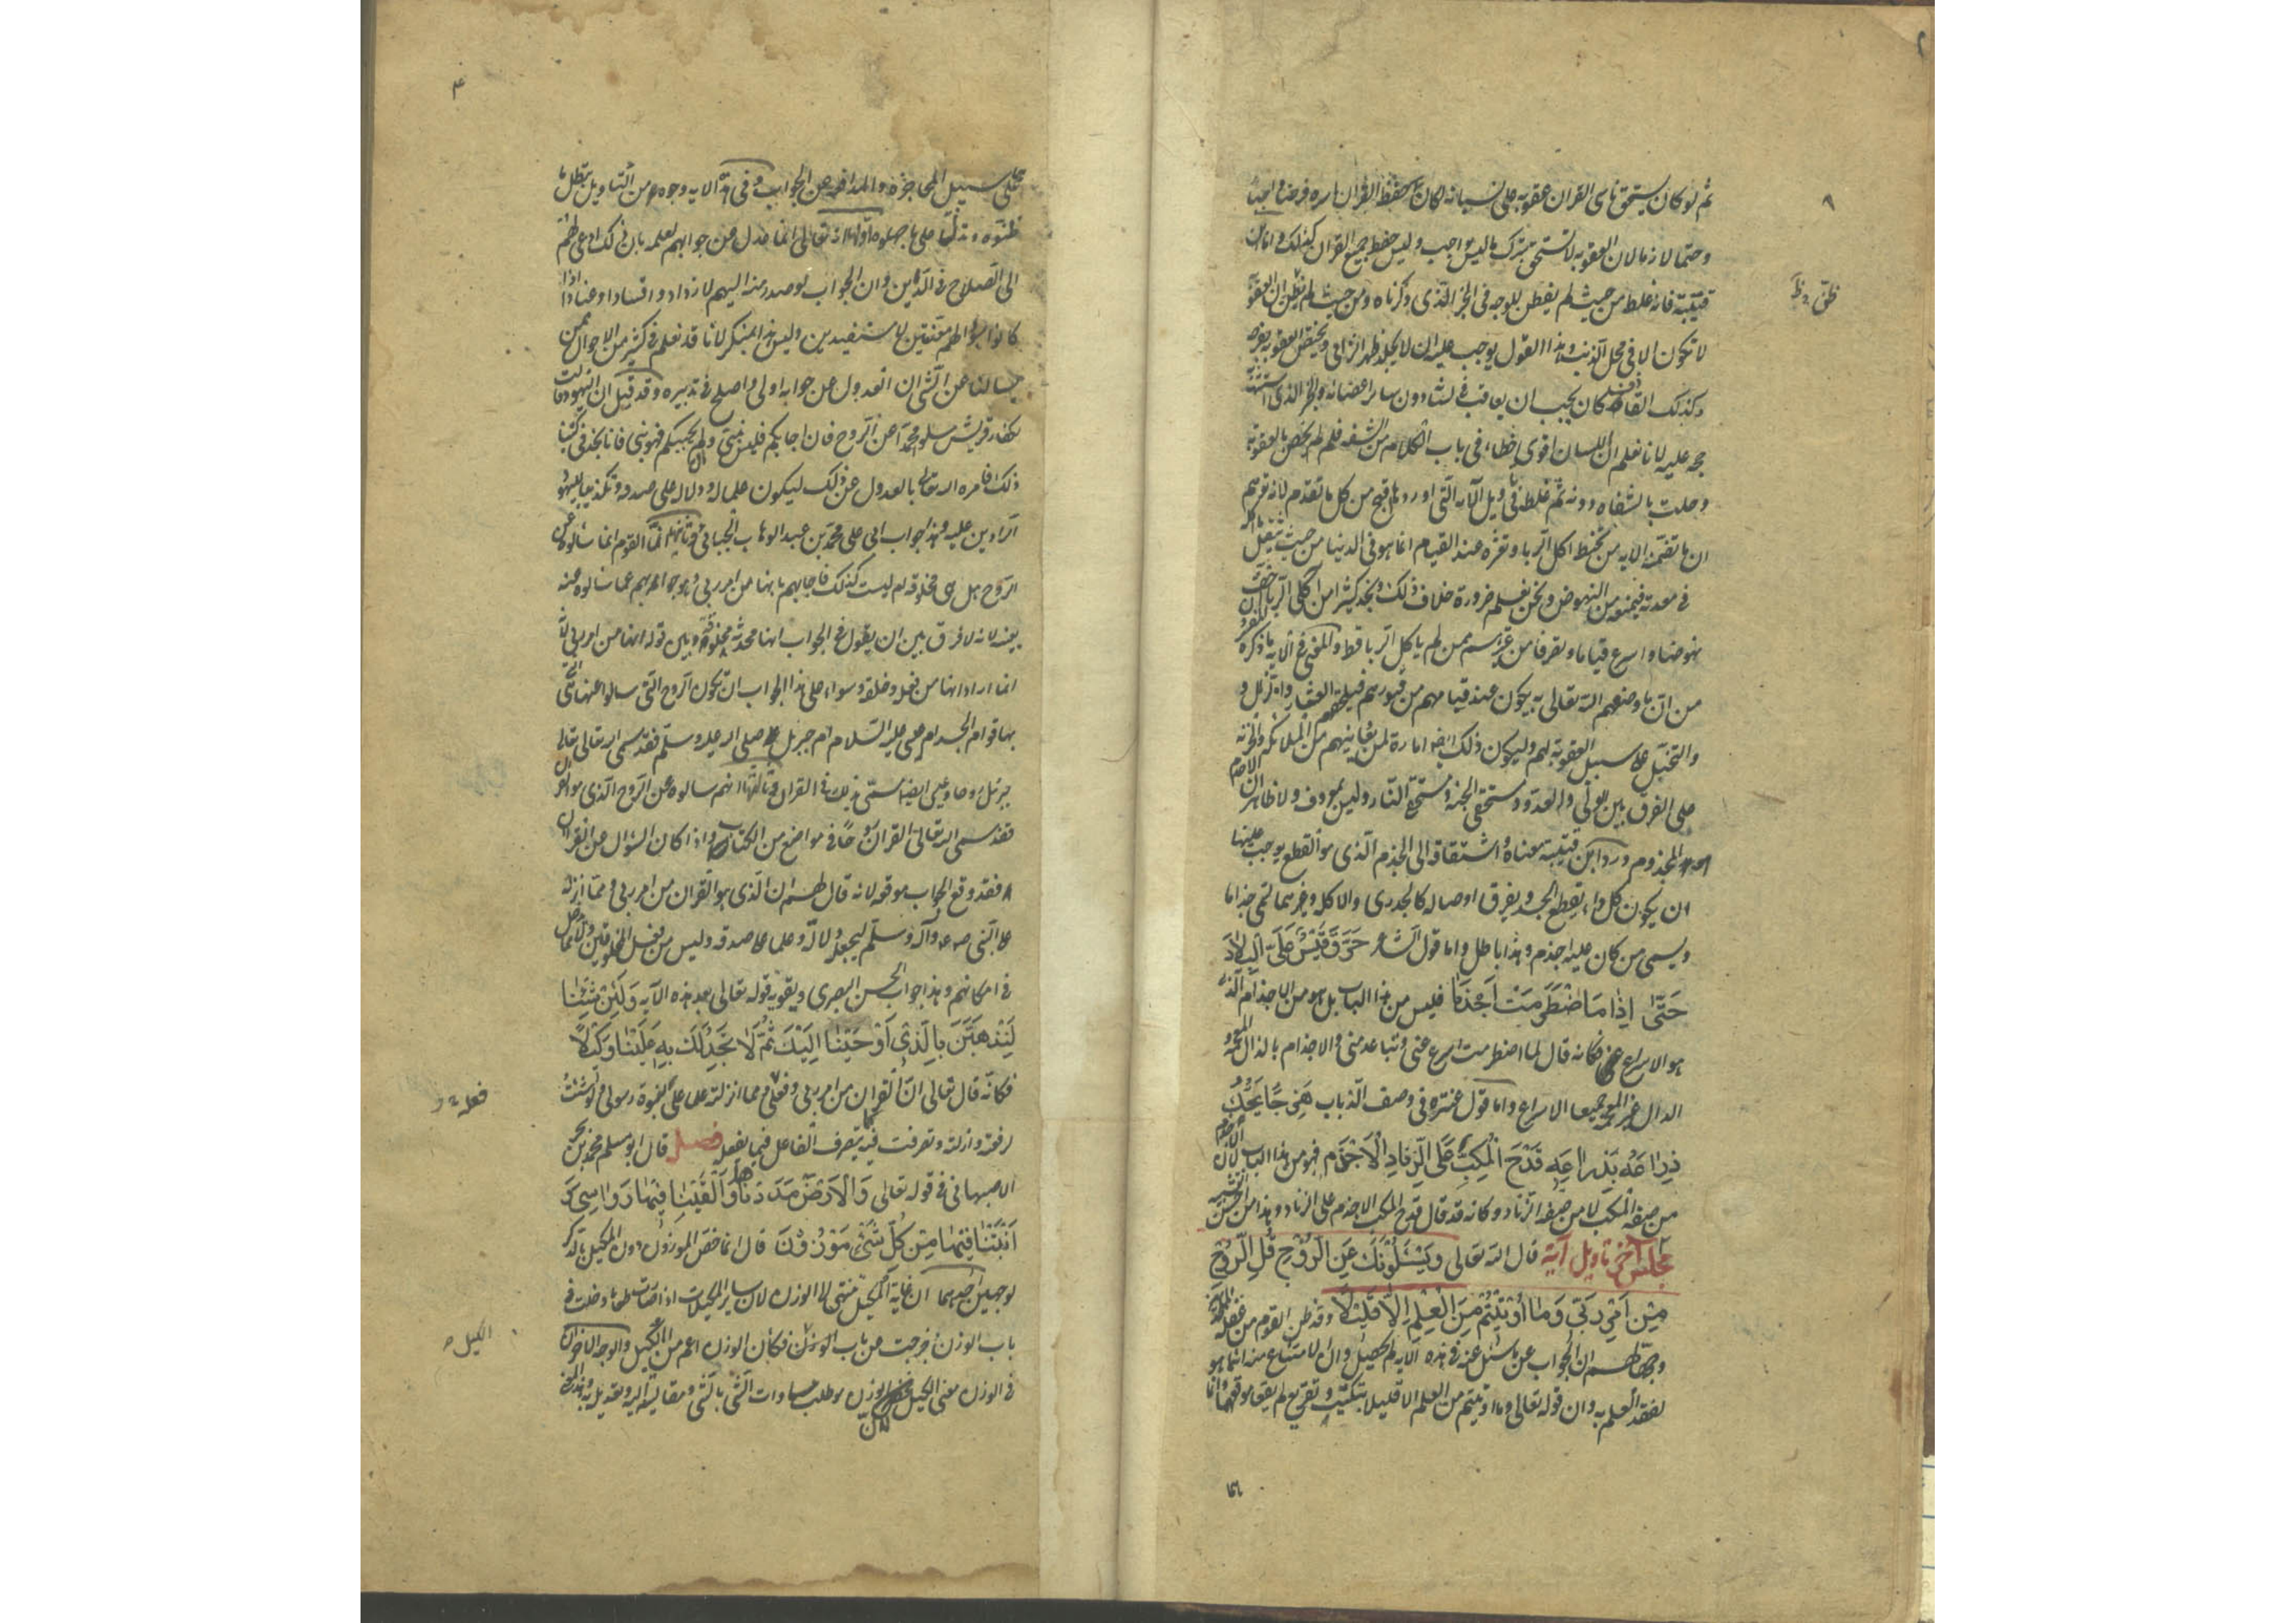 ثم لو كان يستحق ناسى القران عقوبه على نسيانه لكان حفظ القران باسره فرضا واجبا
وحتما لازما لان العقوبه لا تستحق بترك ما ليس بواجب وليس حفظ جميع القران كذلك واما ابن
قتيبة فانه غلط من حيث لم يفطن للوجه فى الخبر الذى ذكرناه ومن حيث لم يظن ان العقوبة
لا تكون الا فى محل الذنب وهذا القول يوجب عليه ان لا يجلد ظهر الزانى ويختص العقوبه بفرجه
وكذلك القاذف كان يجب ان يعاقب فى لسانه دون سائر اعضائه والخبر الذى استشهد
حجه عليه لانا نعلم ان اللسان اقوى خطاء فى باب الكلام من الشفه فلم لم يخص بالعقوبة
وحلت بالشفاه دونه ثم غلطه فى تاويل الآيه التى اوردها اقبح من كل ما تقدم لانه توهم
ان ما تضمنه الايه من تخبط اكل الربا وتعثره عند القيام انما هو فى الدنيا من حيث يثقل ما اكل
فى معدته فيمنعه من النهوض ونحن نعلم ضرورة خلاف ذلك ونجد كثيرا من آكلى الربا اخف
نهوضا واسرع قياما وتصرفا من غيرهم ممن لم ياكل الربا قط والمعنى فى الايه ما ذكره المفسرون
من ان ما وصفهم الله تعالى به يكون عند قيامهم من قبورهم فيلحقهم العثار والزلل و
والتخبل على سبيل العقوبة لهم وليكون ذلك ايضا امارة لمن يعاينهم من الملائكه والخزنه
على الفرق بين الولى والعدو ومستحقى الجنه ومستحقى النار وليس بمعروف ولا ظاهر ان الاجذم
هو المجذوم ورد ابن قتيبة معناه واشتقاقه الى الجذم الذى هو القطع يوجب عليها
ان يكون كل داء يقطع الجسد ويفرق اوصاله كالجدرى والاكله وغيرهما تسمى جذاما
ويسمى من كان عليه اجذم وهذا باطل واما قول الشاعر حَرَّقَ قَيْسٌ عَلَىَّ الْبِلَادَ
حَتَّى اِذَا مَا اضْطَرَمَتْ اَجْذَمَا فليس من هذا الباب بل هو من الاجذام الذى
هو الاسراع فكانه قال لما اضطرمت اسرع عنى وتباعد منى والاجذام بالذال المعجمه و
الدال غير المعجمه جميعا الاسراع واما قول عنتره فى وصف الذباب هَزِجًا يَحُكُّ
ذِرَاعَهُ بِذِرَاعِهِ قَدْحَ الْمُكِبِّ عَلَى الزِّنَادِ الْاَجْذَمِ فهو من هذا الباب لان الاجذم
من صفه المكب لا من صفه الزناد وكانه قد قال قدح المكب الاجذم على الزناد وهذا من احسن التشبيه
مجلس آخر تاويل آية قال الله تعالى وَيَسْئَلُونَكَ عَنِ الرُّوْحِ قُلِ الرُّوْحُ
مِنْ اَمْرِ رَبِّى وَمَا اُوْتِيْتُمْ مِنَ الْعِلْمِ اِلَّا قَلِيْلًا وقد ظن القوم من غفلة الملحدين
وجهالهم ان الجواب عن ما سئل عنه فى هذه الآيه لم يحصل وان الامتناع منه انما هو
لفقد العلم به وان قوله تعالى وما اوتيتم من العلم الا قليلا تبكيت وتقريع لم يقعا موقعهما وانما
على
على سبيل المحاجزه والمدافعه عن الجواب وفى هذه الايه وجوه من التاويل تبطل ما
ظنوه وتدل على ما جهلوه اولها انه تعالى انما عدل عن جوابهم لعلمه بان ذلك ادعى لهم
الى الصلاح فى الدين وان الجواب لو صدر منه اليهم لازدادوا فسادا وعنادا اذ
كانوا بسؤالهم متعنتين لا مستفيدين وليس هذا بمنكر لانا قد نعلم فى كثير من الاحوال ممن
يسالنا عن الشئ ان العدول عن جوابه اولى واصلح فى تدبيره وقد قيل ان اليهود قالت
لكفار قريش سلوا محمدا عن الروح فان اجابكم فليس بنبى وان لم يجبكم فهو نبى فانا نجد فى كتبنا
ذلك فامره الله تعالى بالعدول عن ذلك ليكون علما له ودلاله على صدقه وتكذيبا لليهود
الرادين عليه وهذا جواب ابى على محمد بن عبد الوهاب الجبائى وثانيها ان القوم انما سالوه عن
الروح هل هى مخلوقه ام ليست كذلك فاجابهم بانها من امر ربى وهو جوابهم عما سالوه عنه
بعينه لانه لا فرق بين ان يقول فى الجواب انها محدثه مخلوقة وبين قوله انها من امر ربى لانه
انما اراد انها من فعله وخلقه وسواء على هذا الجواب ان يكون الروح التى سالوا عنها التى
بها قوام الجسد ام عيسى عليه السلام ام جبرئيل صلى الله عليه وسلم فقد سمى الله تعالى
جبرئيل روحا وعيسى ايضا مسمى بذلك فى القران وثالثها انهم سالوه عن الروح الذى هو القران
فقد سمى الله تعالى القران روحا فى مواضع من الكتاب واذا كان السؤال عن القران
فقد وقع الجواب موقعه لانه قال لهم ان الذى هو القران من امر ربى ومما انزله
على النبى صلى الله عليه وآله وسلم ليجعله دلالة وعلما على صدقه وليس من فعل المخلوقين ولا مما يدخل
فى امكانهم وهذا جواب الحسن البصرى ويقويه قوله تعالى بعد هذه الآيه وَلَئِنْ شِئْنَا
لَنَذْهَبَنَّ بِالَّذِىْ اَوْحَيْنَا اِلَيْكَ ثُمَّ لَا تَجِدُ لَكَ بِهِ عَلَيْنَا وَكِيْلًا
فكانه قال تعالى ان القران من امر ربى وفعلى ومما انزلته علما على نبوة رسولى ولو شئت
لرفعته وازلته وتصرفت فيه كما يتصرف الفاعل فيما يفعله فصل قال ابو مسلم محمد بن بحر
الاصبهانى فى قوله تعالى وَالْاَرْضَ مَدَدْنَاهَا وَاَلْقَيْنَا فِيْهَا رَوَاسِىَ وَ
اَنْبَتْنَا فِيْهَا مِنْ كُلِّ شَىْءٍ مَوْزُوْنٍ قال انما خص الموزون دون المكيل بالذكر
لوجهين احدهما ان غاية المكيل تنتهى الى الوزن لان سائر المكيلات اذا صارت طعاما دخلت فى
باب الوزن وخرجت عن باب الوزن فكان الوزن اعم من الكيل والوجه الاخر ان
فى الوزن معنى الكيل لان الوزن هو طلب مساوات الشئ بالشئ ومقايسته اليه وتعديله به وهذا
فعله
الكيل